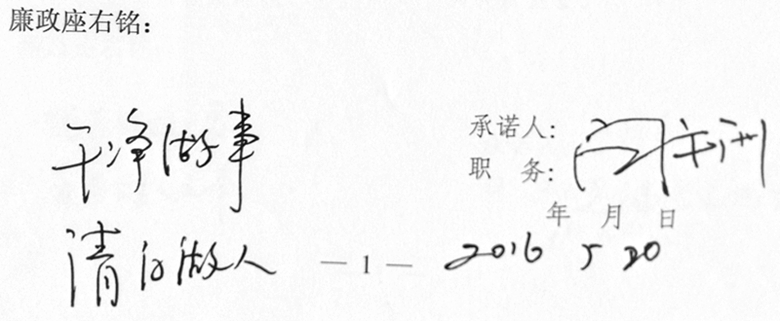 廉政座右铭：
干净做事
清白做人
承诺人：
职 务：
年 月 日
2016 5 20
— 1 —